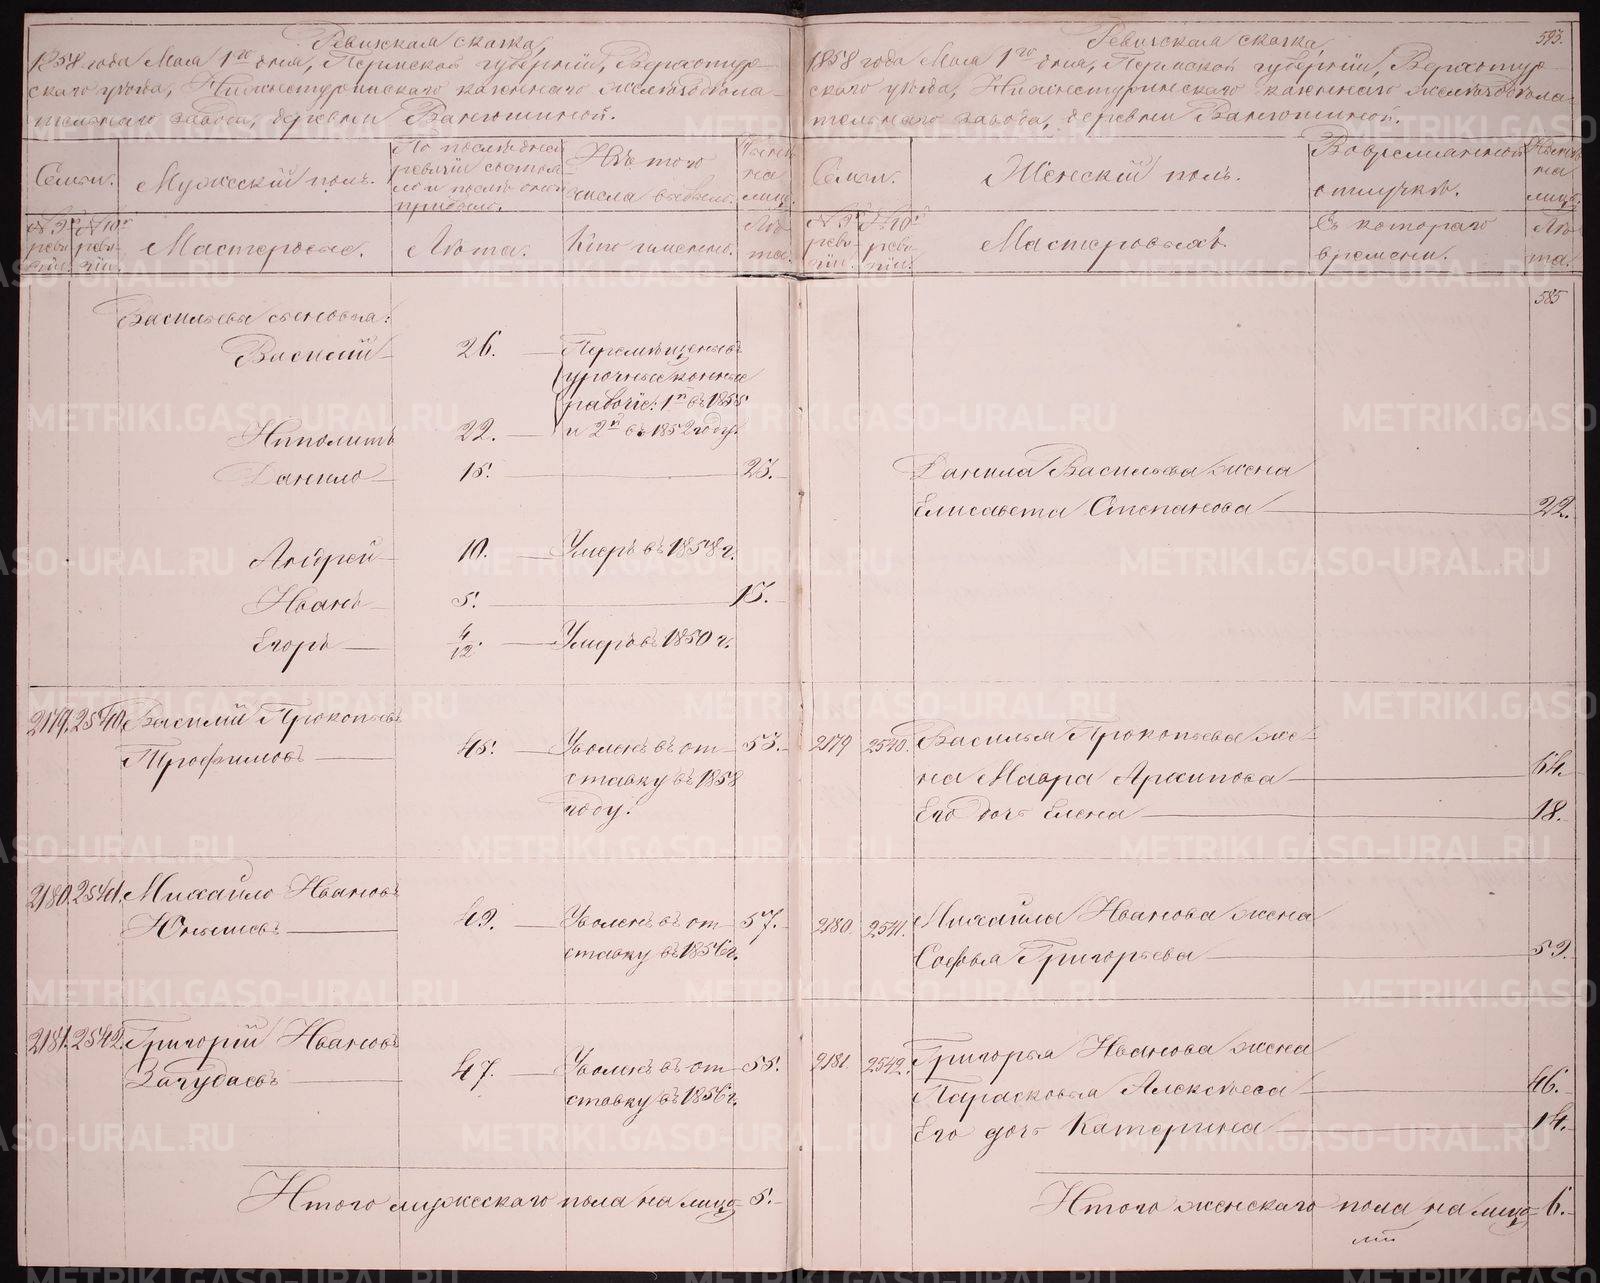 Ревизская сказка,
1858 года Мая 1го дня, Пермской губернии, Верхотур-
скаго уѣзда, Нижнетуринскаго казеннаго желѣзодѣла-
тельнаго завода, деревни
Семьи.
Мужескій полъ.
По послѣдней
ревизіи состоя-
ло и послѣ оной
прибыло.
Изъ того
числа выбыло.
Нынѣ
на
лицо.
№ 9й
реви-
зіи.
№ 10й
реви-
зіи.
Мастеровые.
Лѣта.
Кто именно.
Лѣ-
та.
Васильевы сыновья:
Василій 26. Перемѣщены въ
урочные конные
рабочіе: 1й въ 1855
Ипполитъ 22. и 2й въ 1852 году.
Данило 15. 23.
Андрей 10. Умеръ въ 1858 г.
Иванъ 5. 13.
Егоръ 4/12. Умеръ въ 1850 г.
2179. 2540. Василій Прокопьевъ
Трофимовъ 45. Уволенъ въ от- 53.
ставку въ 1858
году.
2180. 2541. Михайло Ивановъ
49. Уволенъ въ от- 57.
ставку въ 1856 г.
2181. 2542. Григорій Ивановъ
47. Уволенъ въ от- 55.
ставку въ 1856 г.
Итого мужескаго пола на лицо 5.
593.
Ревизская сказка,
1858 года Мая 1го дня, Пермской губерніи, Верхотур-
скаго уѣзда, Нижнетуринскаго казеннаго желѣзодѣла-
тельнаго завода, деревни
Семьи.
Женскій полъ.
Во временной
отлучкѣ.
Нынѣ
на
лицо.
№ 9й
реви-
зіи.
№ 10й
реви-
зіи.
Мастеровыхъ.
Съ котораго
времени.
Лѣ-
та.
585
Данила Васильева жена
Елисавета Степанова 22.
2179 2540. Василья Прокопьева же-
на Мавра Архипова 64.
Его дочь Елена 18.
2180. 2541. Михайла Иванова жена
Софья Григорьева 59.
2181. 2542. Григорья Иванова жена
Парасковья Алексѣева 46.
Его дочь Катерина 14.
Итого женскаго пола на лицо 6.
METRIKI.GASO-URAL.RU